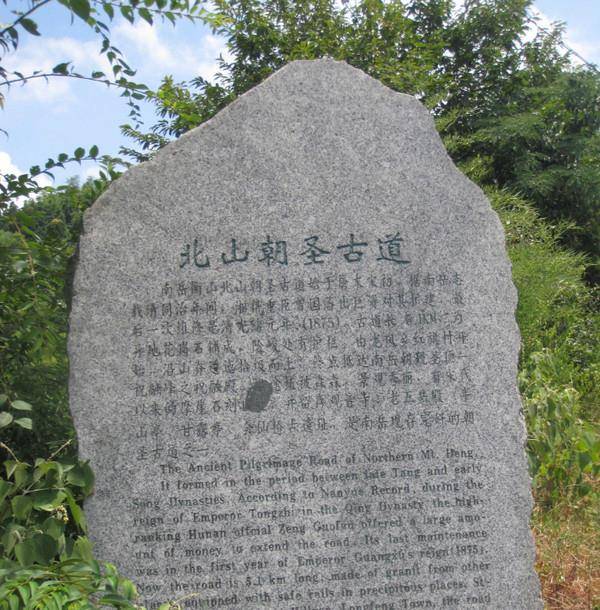 北山朝圣古道
南岳衡山北山朝圣古道始于唐末宋初。据南岳志
载清同治年间，湘籍重臣曾国藩出巨资对其扩建，最
后一次维修是清光绪元年(1875)。古道长
花岗石铺成，险峻处有护栏。由老
沿山脊 拾级而上，终点抵达南岳朝殿圣
祝融峰之 植被森森，景观秀丽，
以来 摩崖石刻 并留存观音寺、老五岳殿、
山亭、甘露亭、会仙桥 遗址，是南岳现存完好的朝
圣古道之一。
The Ancient Pilgrimage Road of Northern Mt. Heng.
It formed in the period between late Tang and early
Song Dynasties. According to Nanyue Record, during the
reign of Emperor Tongzhi in the Qing Dynasty, the high-
ranking Hunan official Zeng Guofan offered a large amo-
unt of money to extend the road. Its last maintenance
was in the first year of Emperor Guangxu's reign(1875).
Now the road is 5.1 km long, made of granit from other
equipped with safe rails in precipitous places. St-
Village, Longfeng Town, the road